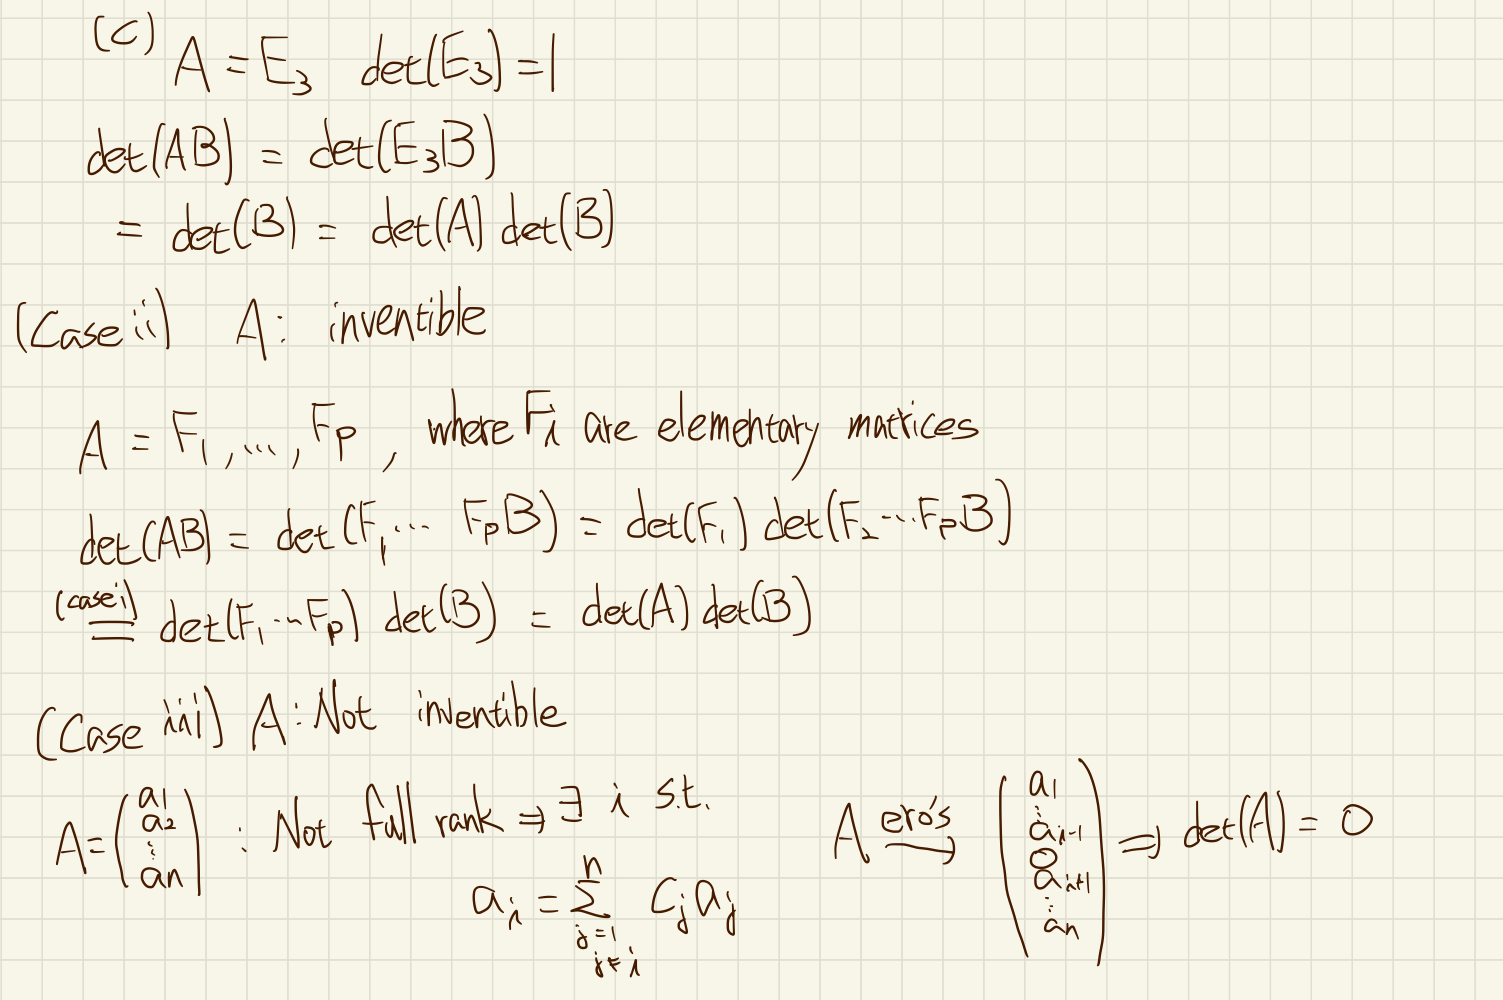 (C) A = E₃ det(E₃) = 1
det(AB) = det(E₃B)
= det(B) = det(A) det(B)
(Case ii) A: inventible
A = F₁, ..., Fₚ, where Fᵢ are elementary matrices
det(AB) = det(F₁, ... FₚB) = det(F₁) det(F₂ ... FₚB)
(case i) = det(F₁ ... Fₚ) det(B) = det(A) det(B)
(Case iii) A: Not inventible
A = (a₁ a₂ ⋮ aₙ) : Not full rank ⇒ ∃ i s.t.
aᵢ = Σⁿ_{j=1, j≠i} Cⱼaⱼ
A ero's → (a₁ ⋮ aᵢ₋₁ 0 aᵢ₊₁ ⋮ aₙ) ⇒ det(A) = 0